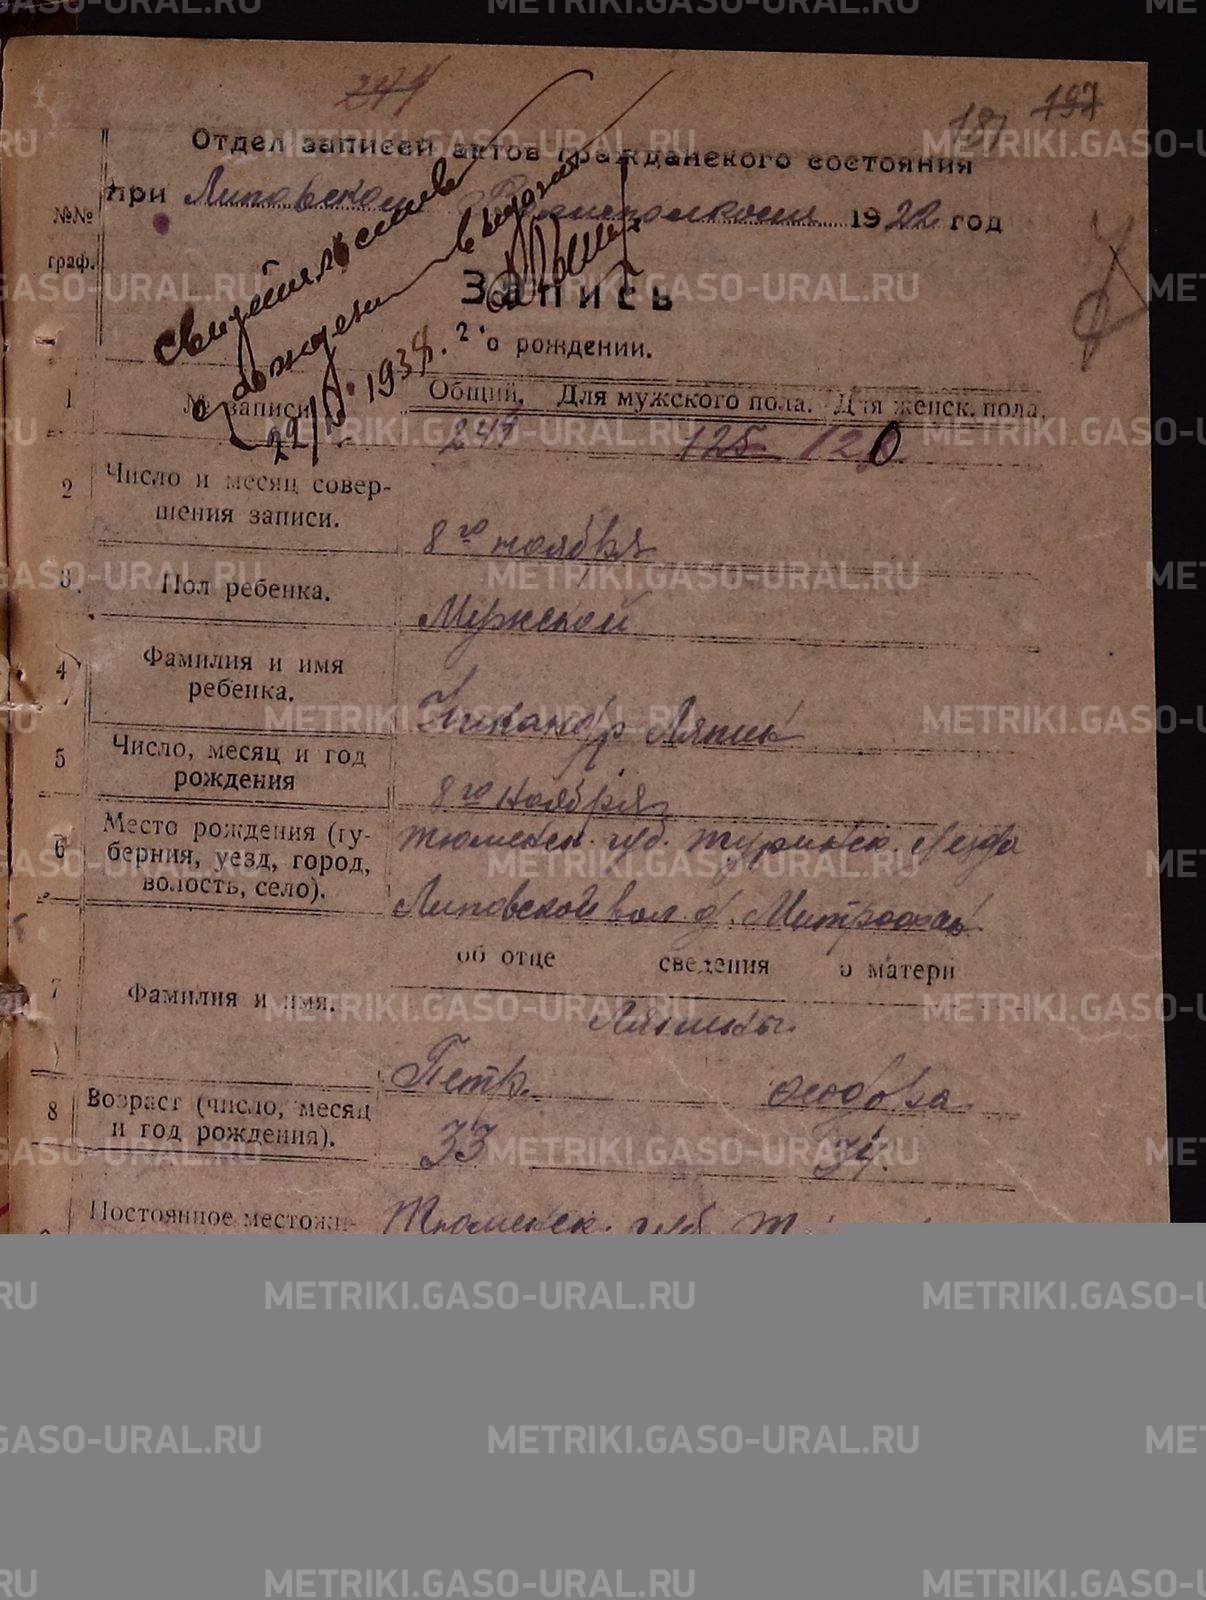 METRIKI.GASO-URAL.RU
244
181 197
Отдел записей актов гражданского состояния
при Липовском Волисполкоме 1922 год
№№ граф.
Свидетельство
о рождении выдано
22/IV 1938 г.
Запись
о рождении.
1 № записи Общий. Для мужского пола. Для женск. пола.
244 125 120
2 Число и месяц совер-
шения записи.
8го ноября
3. Пол ребенка.
Мужской
4 Фамилия и имя
ребенка.
Никандр Ляпин
5 Число, месяц и год
рождения
8го ноября
6 Место рождения (гу-
берния, уезд, город,
волость, село).
Тюменск. губ. Туринск. уезда
Липовской вол. д. Митрофан
об отце сведения о матери
7 Фамилия и имя.
Ляпины.
Петр.
8 Возраст (число, месяц
и год рождения).
33 34.
Постоянное местожи-
Тюменск. губ. Т